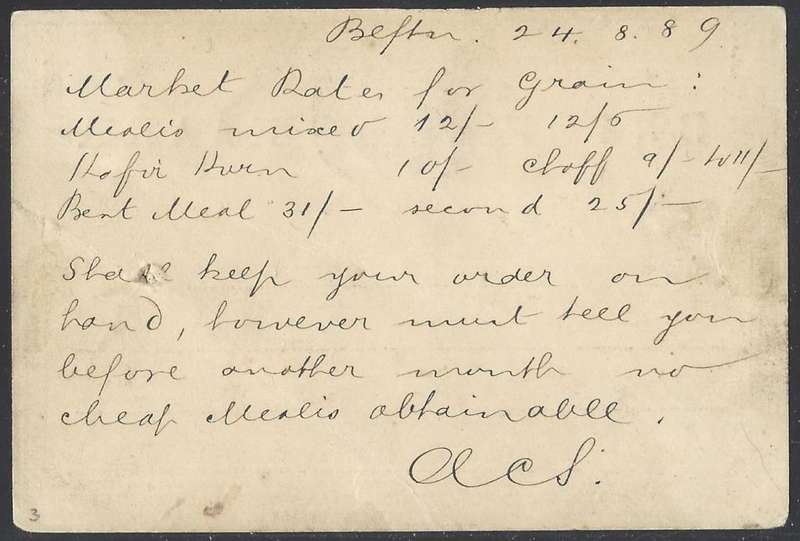 Beftn. 24. 8. 89
Market Rates for Grain:
Mealis mixed 12/- 12/6
Kafir Kurn 10/- Chaff 9/- to 11/-
Best Meal 31/- second 25/-
Shall keep your order on
hand, however must tell you
before another month no
cheap Mealis obtainable.
ACS.
3